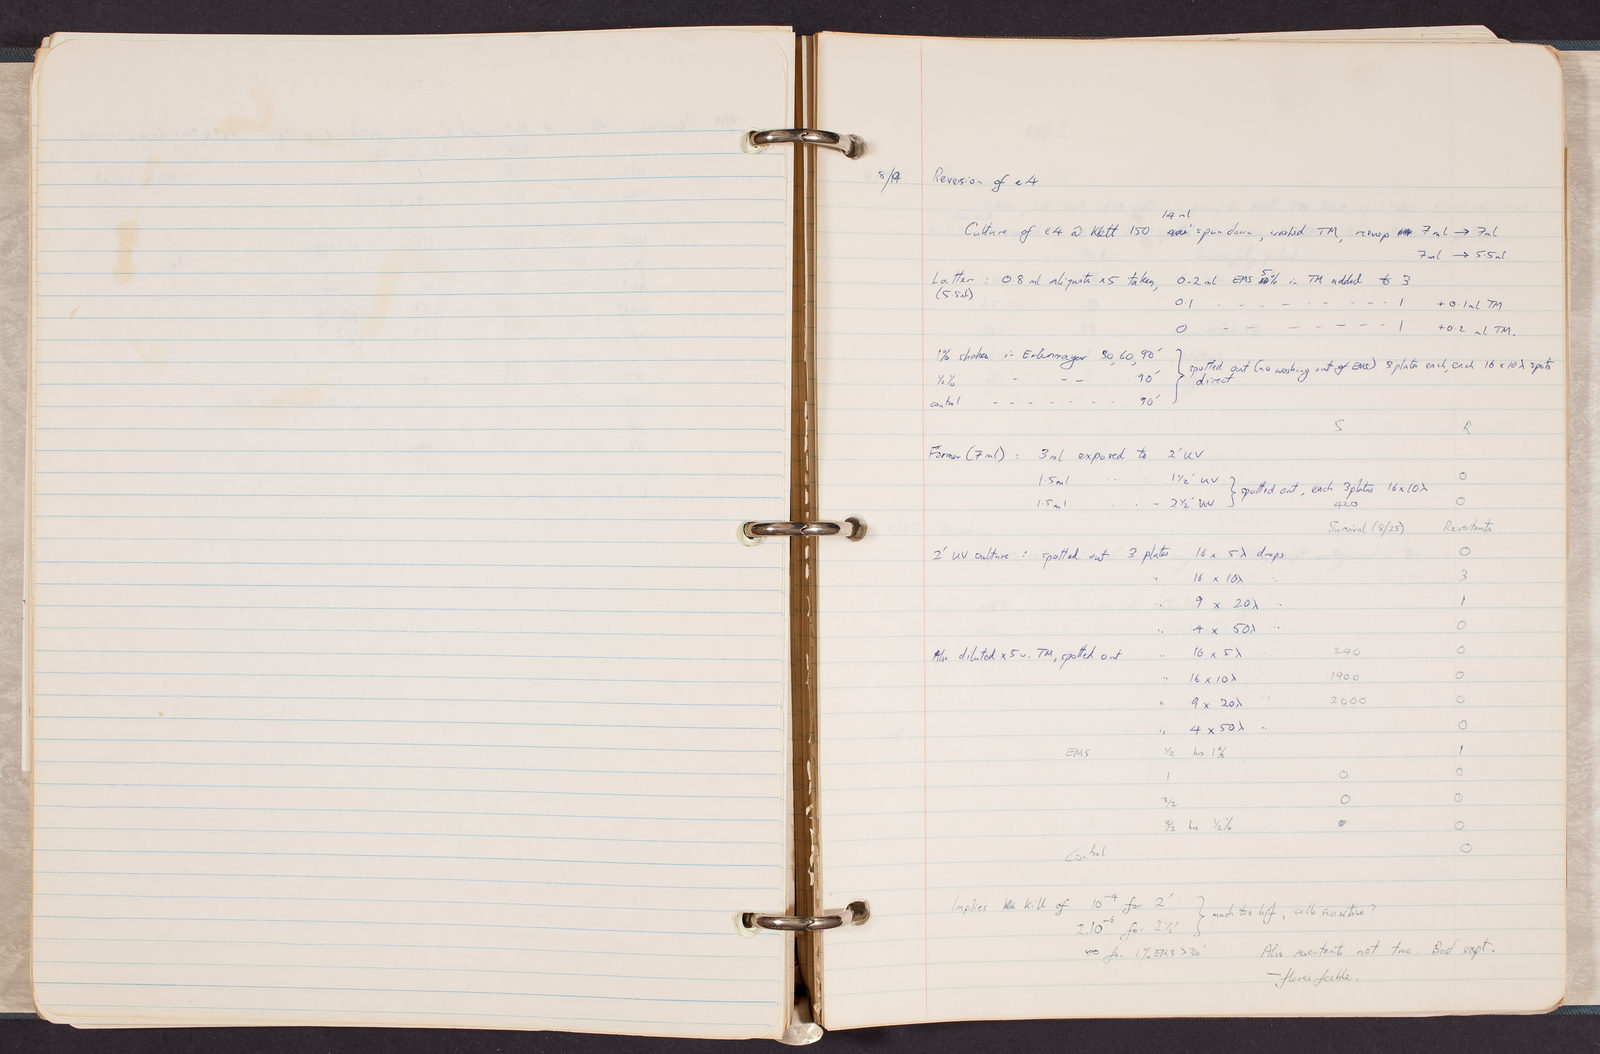 8/19 Reversion of e4
14 ml
Culture of e4 @ Klett 150 spun down, washed TM, resusp 7 ml → 7 ml
7 ml → 5.5 ml
Latter : 0.8 ml aliquots x5 taken, 0.2 ml EMS 5% in TM added to 3
(5.5 ml)
0.1 - - - - - - - - 1 + 0.1 ml TM
0 - - - - - - - - 1 + 0.2 ml TM.
1% shaken in Erlenmeyer 30, 60, 90'
spotted out (no washing out of EMS) 3 plates each, each 16 x 10λ spots
direct
½% - - - 90'
control - - - - - - - 90'
S R
Former (7 ml) : 3 ml exposed to 2' UV
1.5 ml " " 1½' UV 0
spotted out, each 3 plates 16x10λ
1.5 ml - - - 2½' UV 420 0
Survival (8/25) Revertants
2' UV culture : spotted out 3 plates 16 x 5λ drops 0
" 16 x 10λ " 3
" 9 x 20λ " 1
" 4 x 50λ " 0
Also diluted x5 TM, spotted out " 16 x 5λ " 240 0
" 16 x 10λ 1900 0
" 9 x 20λ " 2000 0
" 4 x 50λ " 0
EMS ½ hr 1% 1
1 0 0
3/2 0 0
3/2 hr ½% 0
Control 0
Implies kill of 10⁻⁴ for 2'
much too high, cells sensitive?
2.10⁻⁶ for 2½'
∞ for 1% EMS > 30' Also revertants not true. Bad expt.